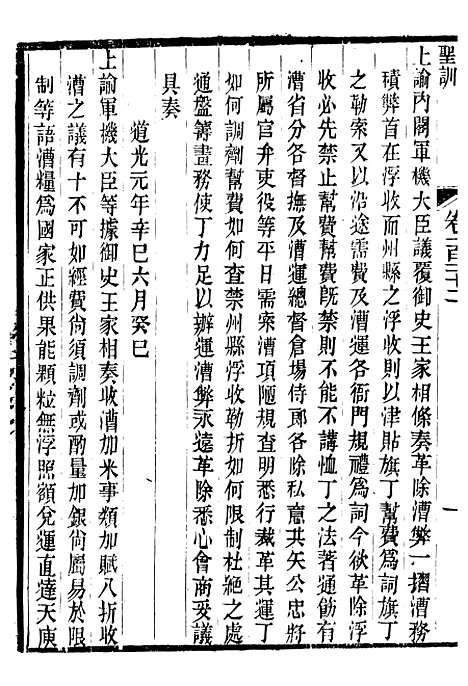 聖訓
卷一百二十二
一
上諭內閣軍機大臣議覆御史王家相條奏革除漕弊一摺漕務
積弊首在浮收而州縣之浮收則以津貼旗丁幫費爲詞旗丁
之勒索又以沿途需費及漕運各衙門規禮爲詞今欲革除浮
收必先禁止幫費旣禁則不能不講恤丁之法著通飭有
漕省分各督撫及漕運總督倉場侍郞各除私意共矢公忠將
所屬官弁吏役等平日需索漕項陋規查明悉行裁革其運丁
如何調劑幫費如何查禁州縣浮收勒折如何限制杜絕之處
通盤籌畫務使丁力足以辦運漕弊永遠革除悉心會商妥議
具奏
道光元年辛巳六月癸巳
上諭軍機大臣等據御史王家相奏收漕加米事類加賦八折收
漕之議有十不可如經費尙須調劑或酌量加銀尙屬易於限
制等語漕糧爲國家正供果能顆粒無浮照額兌運直達天庾